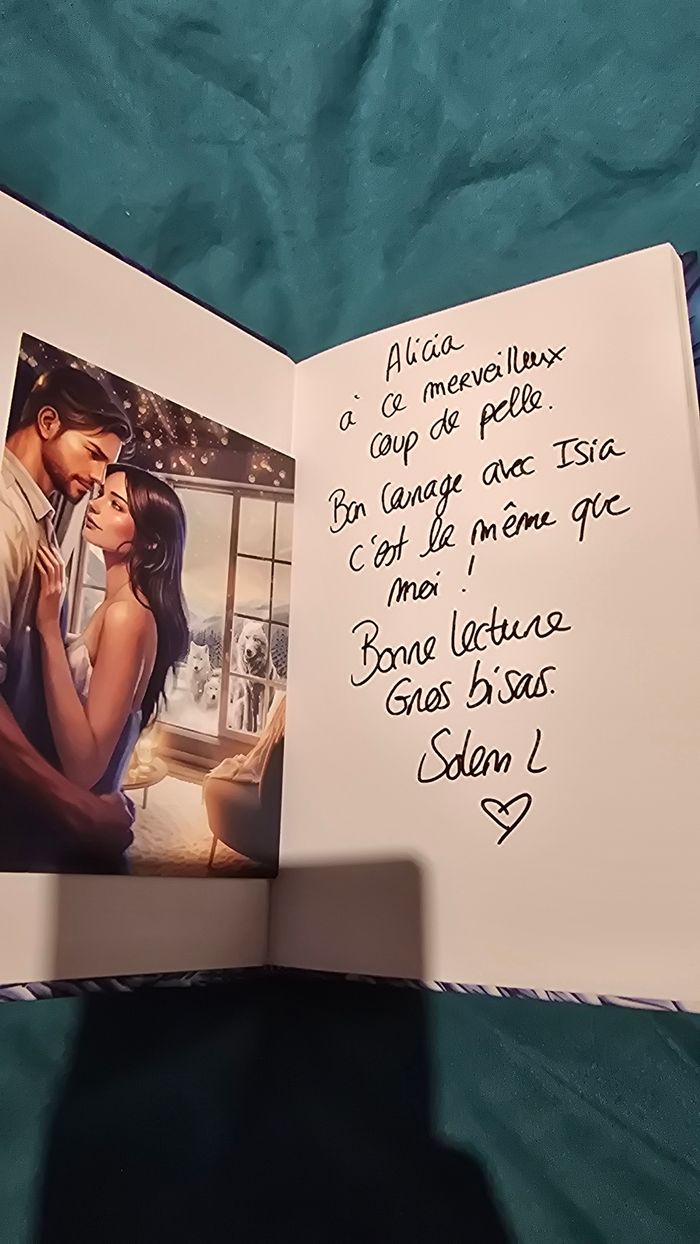 Alicia
à ce merveilleux
coup de pelle.
Bon Carnage avec Isia
c'est la même que
moi !
Bonne lecture
Gros bisas.
Solem L